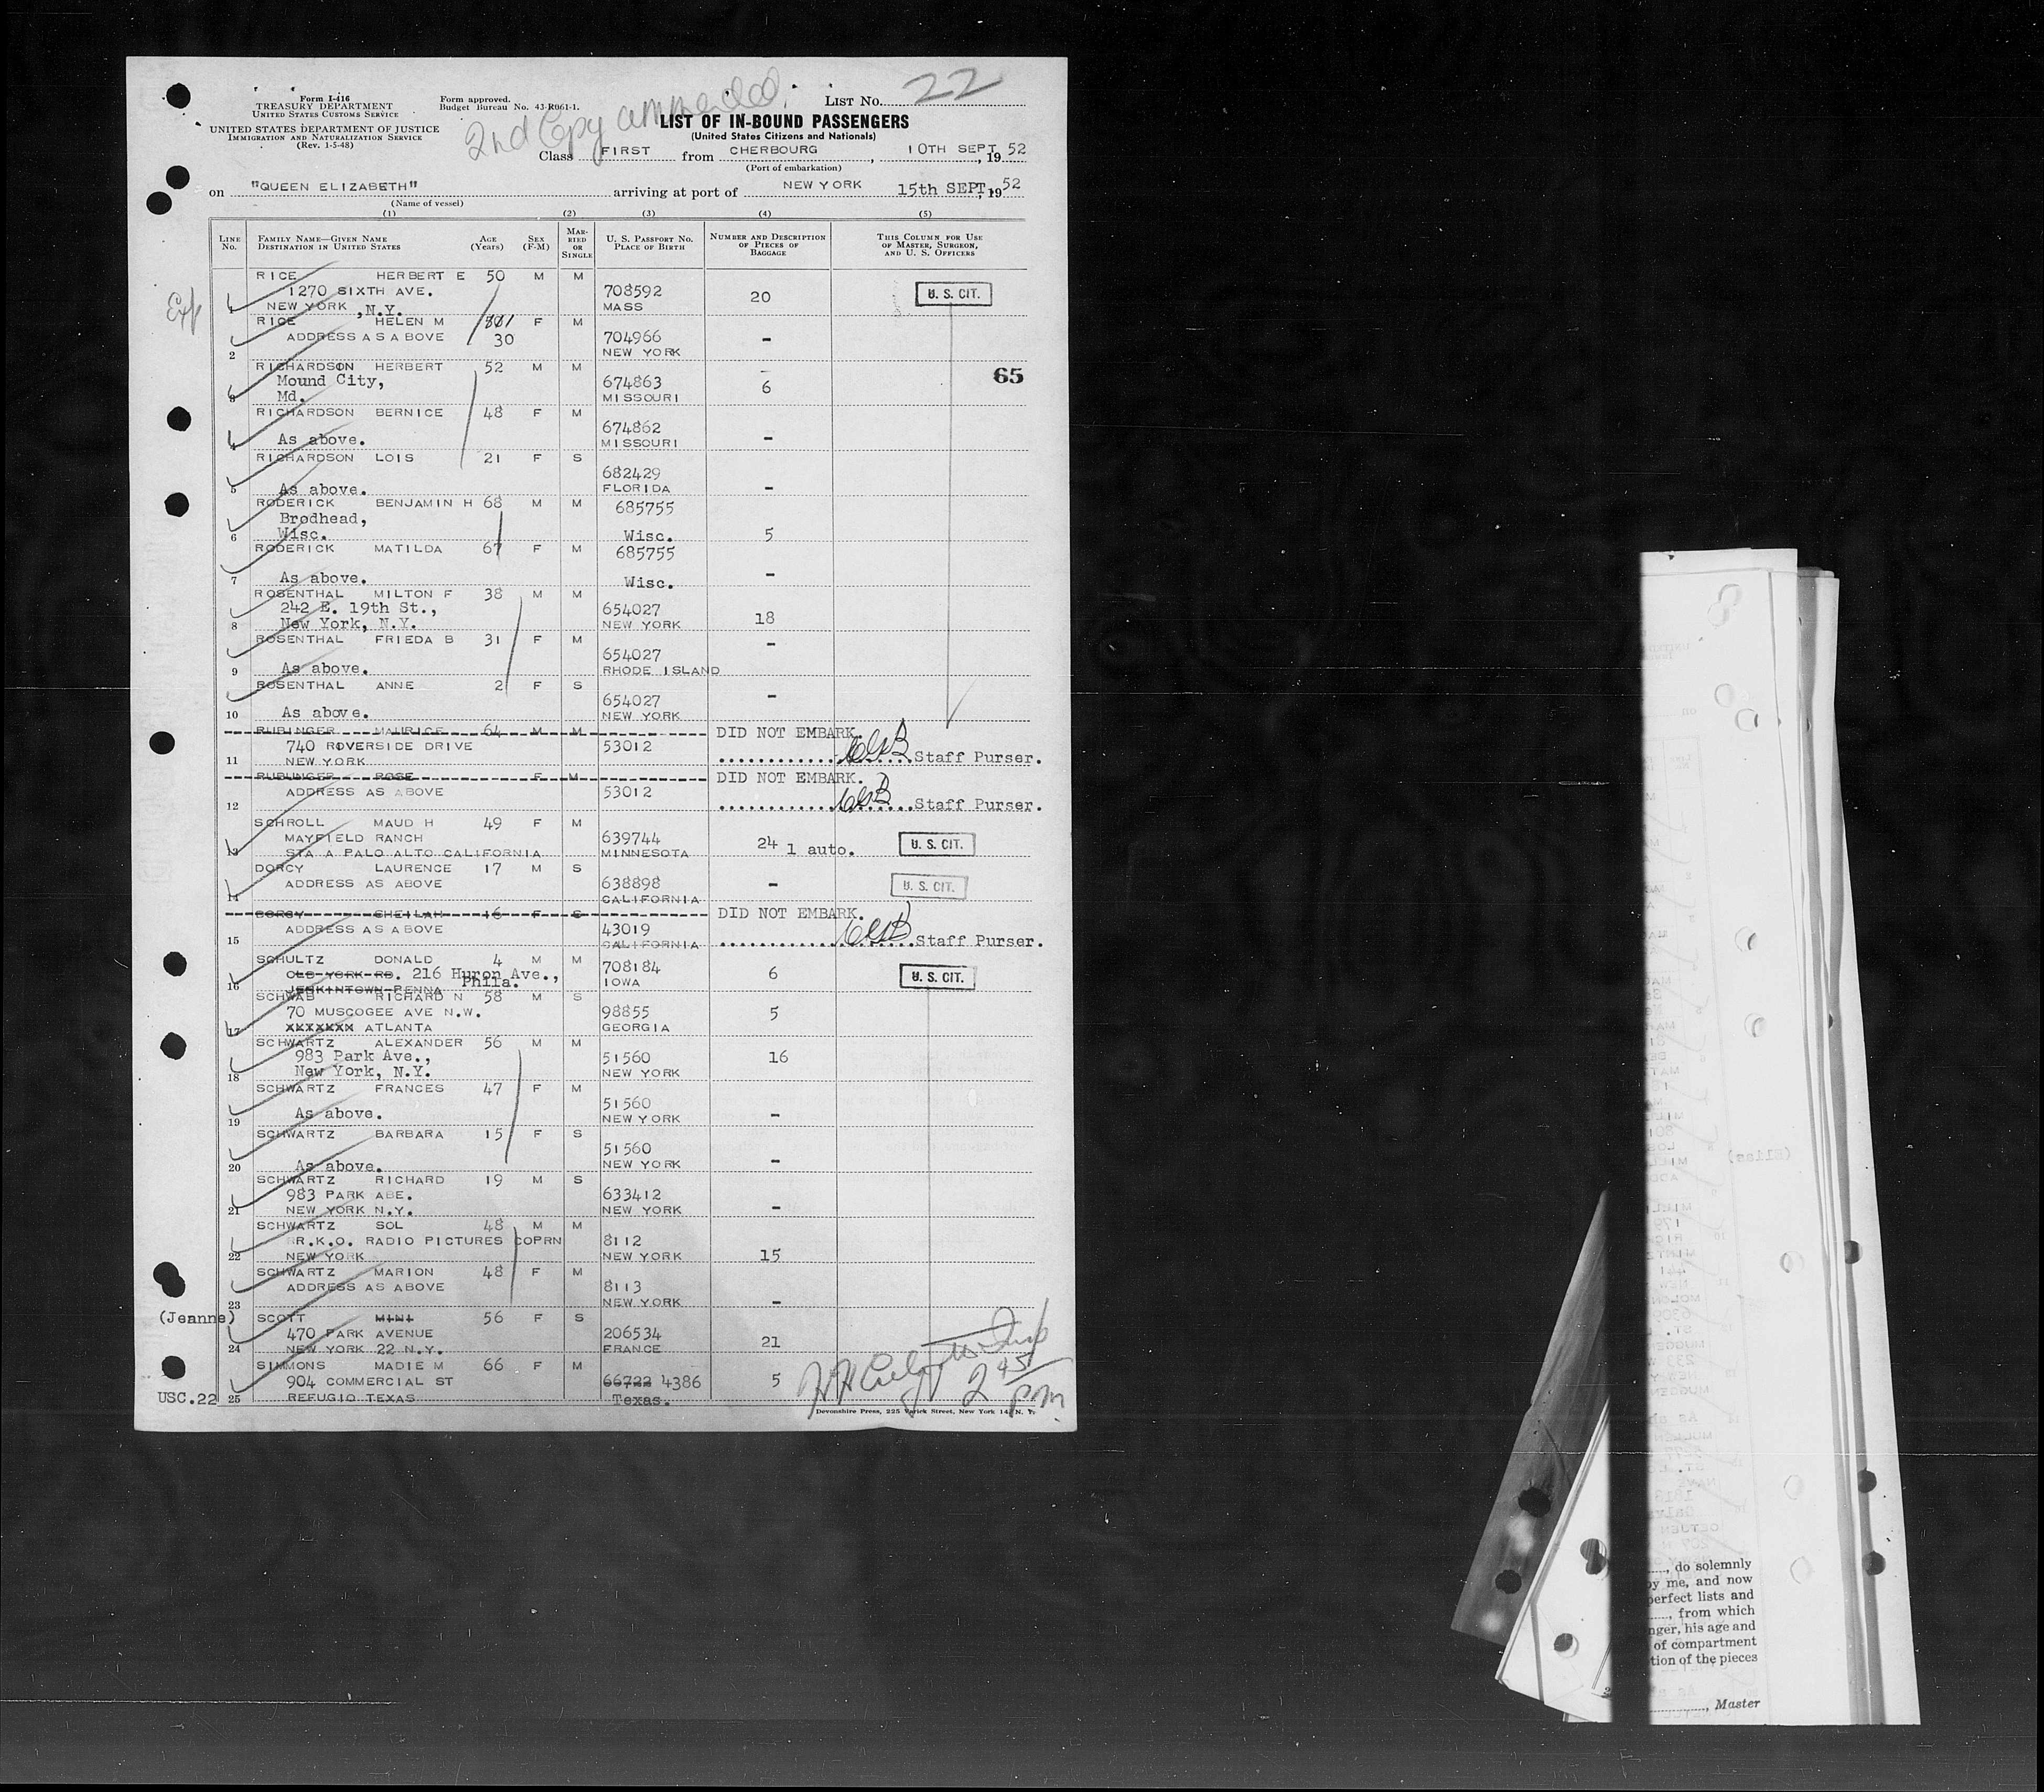 Form I-416
TREASURY DEPARTMENT
UNITED STATES CUSTOMS SERVICE
UNITED STATES DEPARTMENT OF JUSTICE
IMMIGRATION AND NATURALIZATION SERVICE
(Rev. 1-5-48)
Form approved.
Budget Bureau No. 43-R061-1.
2nd Copy ammended.
LIST No. 22
LIST OF IN-BOUND PASSENGERS
(United States Citizens and Nationals)
Class FIRST from CHERBOURG, 10TH SEPT, 19 52
(Port of embarkation)
on "QUEEN ELIZABETH" arriving at port of NEW YORK 15th SEPT, 19 52
(Name of vessel)
(1) (2) (3) (4) (5)
LINE NO. FAMILY NAME—GIVEN NAME DESTINATION IN UNITED STATES AGE (Years) SEX (F-M) MARRIED OR SINGLE U. S. PASSPORT NO. PLACE OF BIRTH NUMBER AND DESCRIPTION OF PIECES OF BAGGAGE THIS COLUMN FOR USE OF MASTER, SURGEON, AND U. S. OFFICERS
RICE HERBERT E 50 M M
1270 SIXTH AVE. 708592 20 U. S. CIT.
1 NEW YORK, N.Y. MASS
RICE HELEN M F M
ADDRESS AS ABOVE 30 704966 -
2 NEW YORK
RICHARDSON HERBERT 52 M M
65
Mound City, 674863 6
3 Md. MISSOURI
RICHARDSON BERNICE 48 F M
674862
4 As above. MISSOURI -
RICHARDSON LOIS 21 F S
682429
5 As above. FLORIDA -
RODERICK BENJAMIN H 68 M M 685755
Brodhead,
6 Wisc. Wisc. 5
RODERICK MATILDA 67 F M 685755
7 As above. Wisc. -
ROSENTHAL MILTON F 38 M M
242 E. 19th St., 654027 18
8 New York, N.Y. NEW YORK
ROSENTHAL FRIEDA B 31 F M -
654027
9 As above. RHODE ISLAND
ROSENTHAL ANNE 2 F S -
654027
10 As above. NEW YORK
RUBINGER MAURICE 64 M M DID NOT EMBARK.
740 ROVERSIDE DRIVE 53012
11 NEW YORK Staff Purser.
RUBUNGER ROSE F M DID NOT EMBARK.
ADDRESS AS ABOVE 53012
12 Staff Purser.
SCHROLL MAUD H 49 F M
MAYFIELD RANCH 639744 24 1 auto. U. S. CIT.
13 STA A PALO ALTO CALIFORNIA MINNESOTA
DORCY LAURENCE 17 M S
ADDRESS AS ABOVE 638898 - U. S. CIT.
14 CALIFORNIA
DORCY SHEILAH 16 F S DID NOT EMBARK.
ADDRESS AS ABOVE 43019
15 CALIFORNIA Staff Purser.
SCHULTZ DONALD 4 M M 708184
OLD YORK RD. 216 Huron Ave., 6 U. S. CIT.
16 JENKINTOWN PENNA Phila. IOWA
SCHWAB RICHARD N 58 M S
70 MUSCOGEE AVE N.W. 98855 5
17 XXXXXXX ATLANTA GEORGIA
SCHWARTZ ALEXANDER 56 M M
983 Park Ave., 51560 16
18 New York, N.Y. NEW YORK
SCHWARTZ FRANCES 47 F M
51560
19 As above. NEW YORK -
SCHWARTZ BARBARA 15 F S
51560
20 As above. NEW YORK -
SCHWARTZ RICHARD 19 M S
983 PARK ABE. 633412
21 NEW YORK N.Y. NEW YORK -
SCHWARTZ SOL 48 M M
R.K.O. RADIO PICTURES COPRN 8112
22 NEW YORK NEW YORK 15
SCHWARTZ MARION 48 F M
ADDRESS AS ABOVE 8113
23 NEW YORK -
(Jeanne) SCOTT MINI 56 F S
470 PARK AVENUE 206534
24 NEW YORK 22 N.Y. FRANCE 21
SIMMONS MADIE M 66 F M
904 COMMERCIAL ST 66722 4386 5 2 45 pm
USC.22 25 REFUGIO TEXAS Texas.
Devonshire Press, 225 Varick Street, New York 14, N. Y.
, do solemnly
by me, and now
perfect lists and
, from which
nger, his age and
of compartment
tion of the pieces
, Master